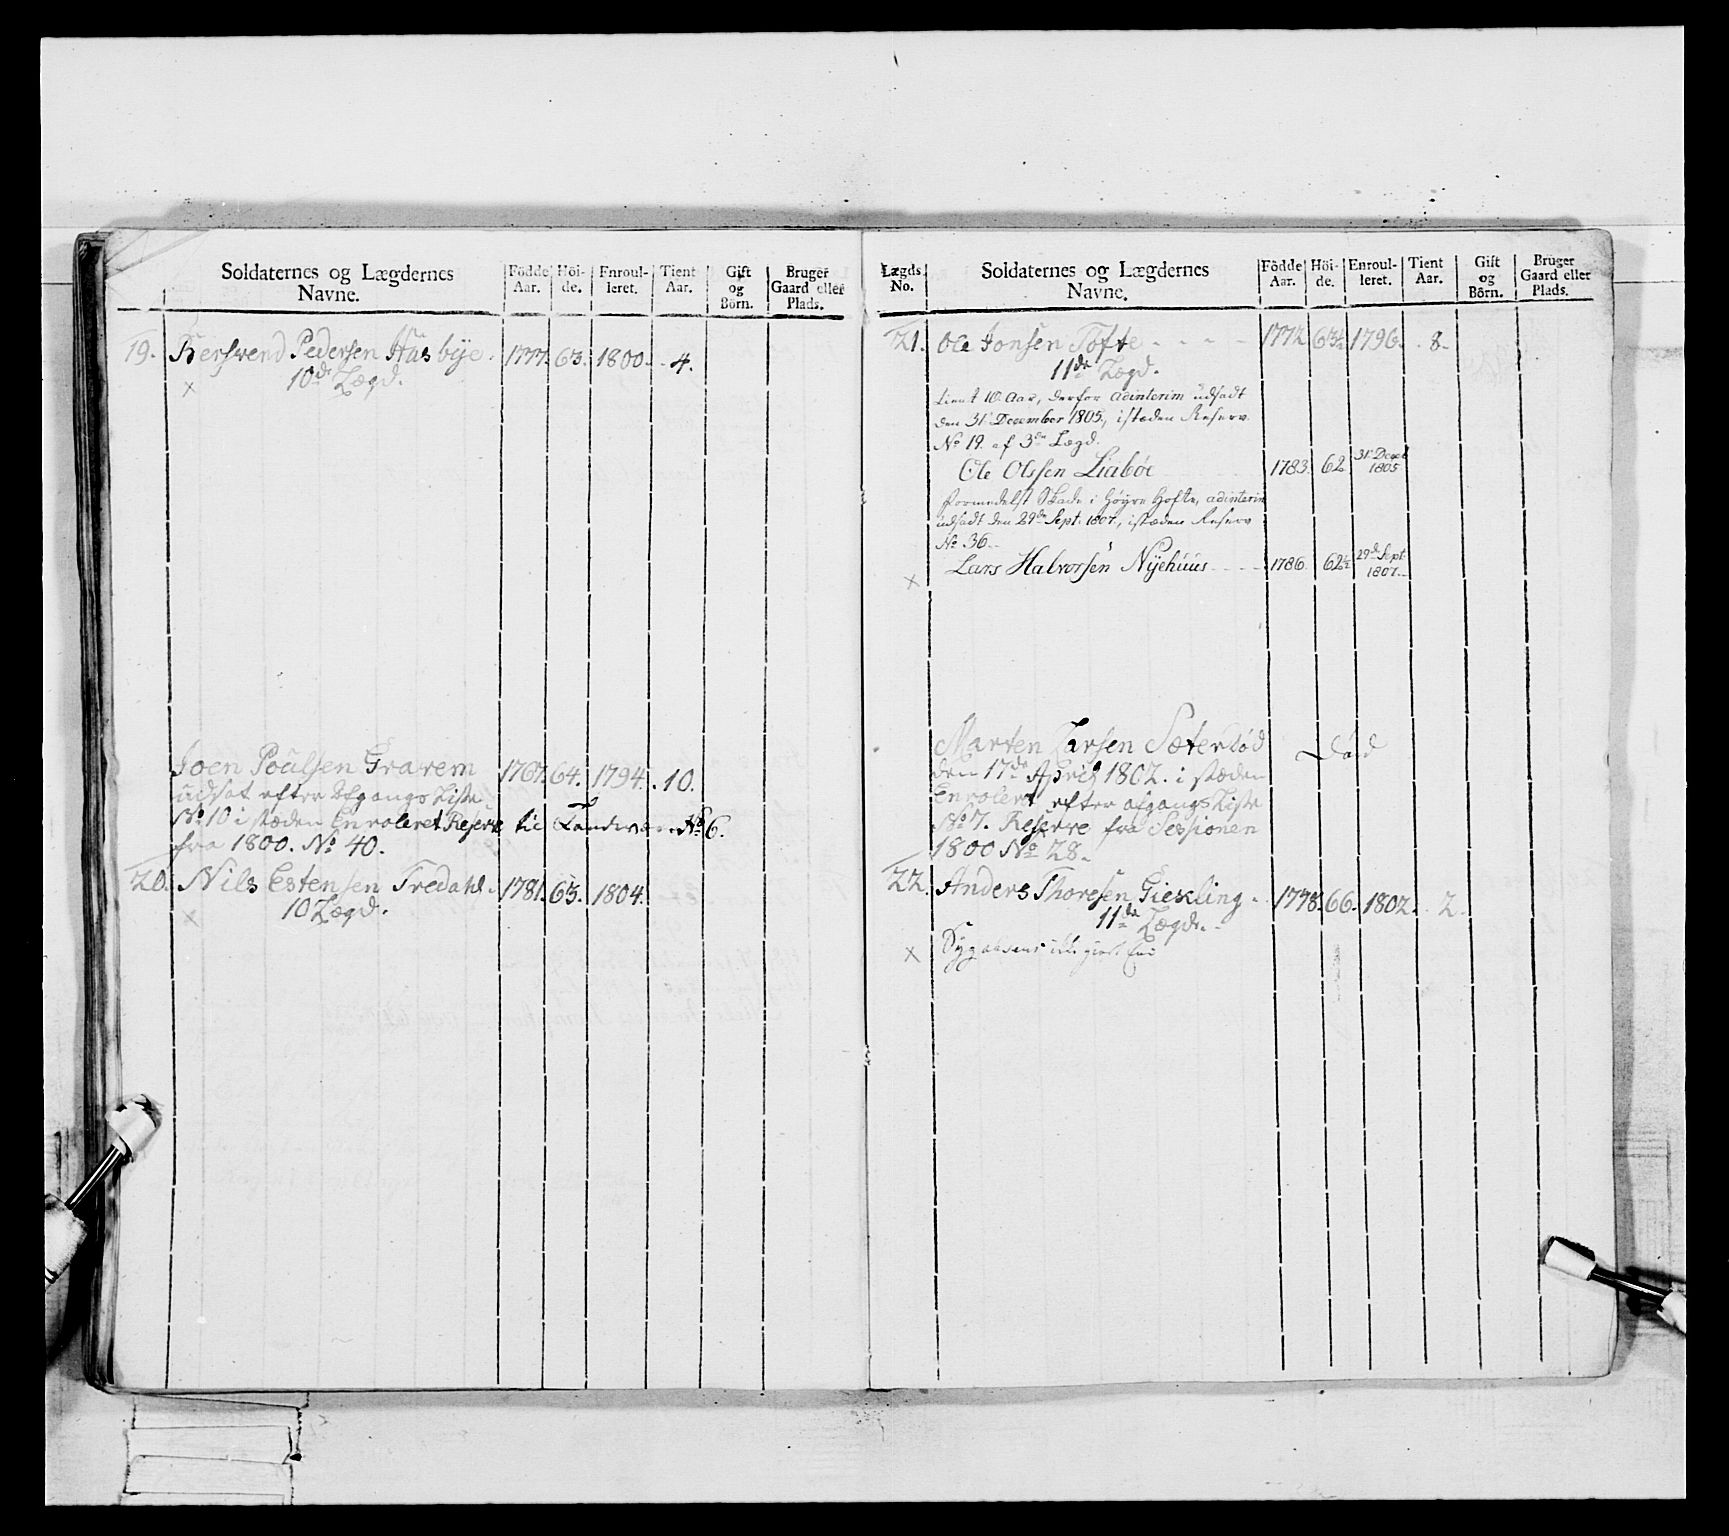 Soldaternes og Lægdernes
Navne.
Födde
Aar.
Höi-
de.
Enroul-
leret.
Tient
Aar.
Gift
og
Börn.
Bruger
Gaard eller
Plads.
19. Bersvend Pedersen Husbye 1777. 63. 1800. 4.
10de Lægd.
×
Joen Poulsen Gravem 1767. 64. 1794. 10.
udsat efter Afgangs Liste
No 10 i stæden Enroleret Reserve til Landværn No 6.
fra 1800. No 40.
20. Nils Estensen Fredahl 1781. 63. 1804.
10 Lægd.
×
Lægds.
No.
Soldaternes og Lægdernes
Navne.
Födde
Aar.
Höi-
de.
Enroul-
leret.
Tient
Aar.
Gift
og
Börn.
Bruger
Gaard eller
Plads.
21. Ole Jonsen Tofte - - - - 1772 63½ 1796. 8.
11de Lægd.
tient 10 Aar, derfor adinterim udsadt
den 31 December 1805, istæden Reserv
No 19 af 3de Lægd.
Ole Olssen Liabøe 1783. 62 31 Decbr 1805
formedelst Skade i Høyre Hofte, adinterim
udsadt den 29de Sept. 1807, istæden Reserv
No 36.
Lars Halvorsen Nyehuus - - - 1786. 62½ 29de Sept 1807.
×
Marten Larsen Sæter død Död
den 17de April 1802. i stæden
Enroleret efter afgangs Liste
No 7. Reserve fra Sessionen
1800 No 28.
22. Anders Thoresen Giexling. 1778. 66. 1802. 2.
11de Lægd.
×